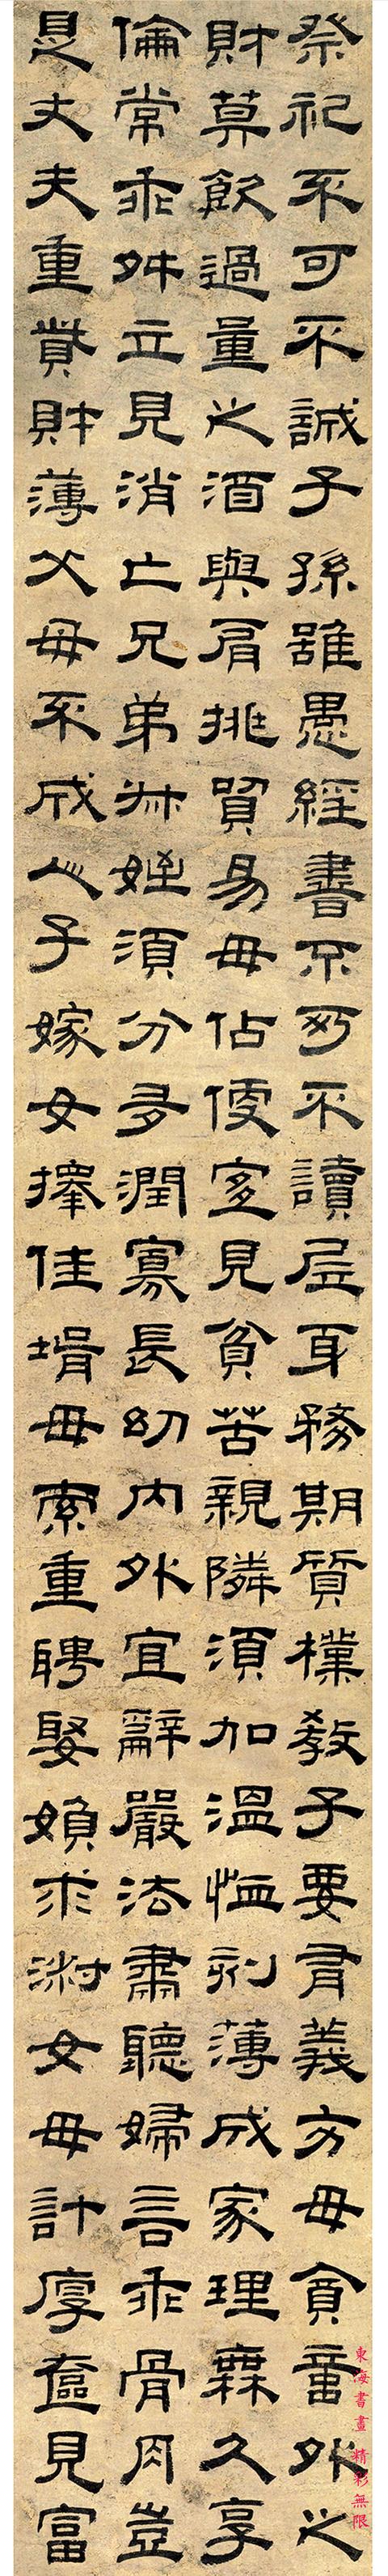 祭祀不可不誠子孫雖愚經書不可不讀居身務期質樸教子要有義方毋貪意外之
財莫飲過量之酒與肩挑貿易毋佔便宜見貧苦親隣須加温恤刻薄成家理無久享
倫常乖舛立見消亡兄弟叔姪須分多潤寡長幼内外宜辭嚴法肅聽婦言乖骨肉豈
是丈夫重貲財薄父母不成人子嫁女擇佳壻毋索重聘娶媍求淑女毋計厚奩見富
東海書畫 精彩無限